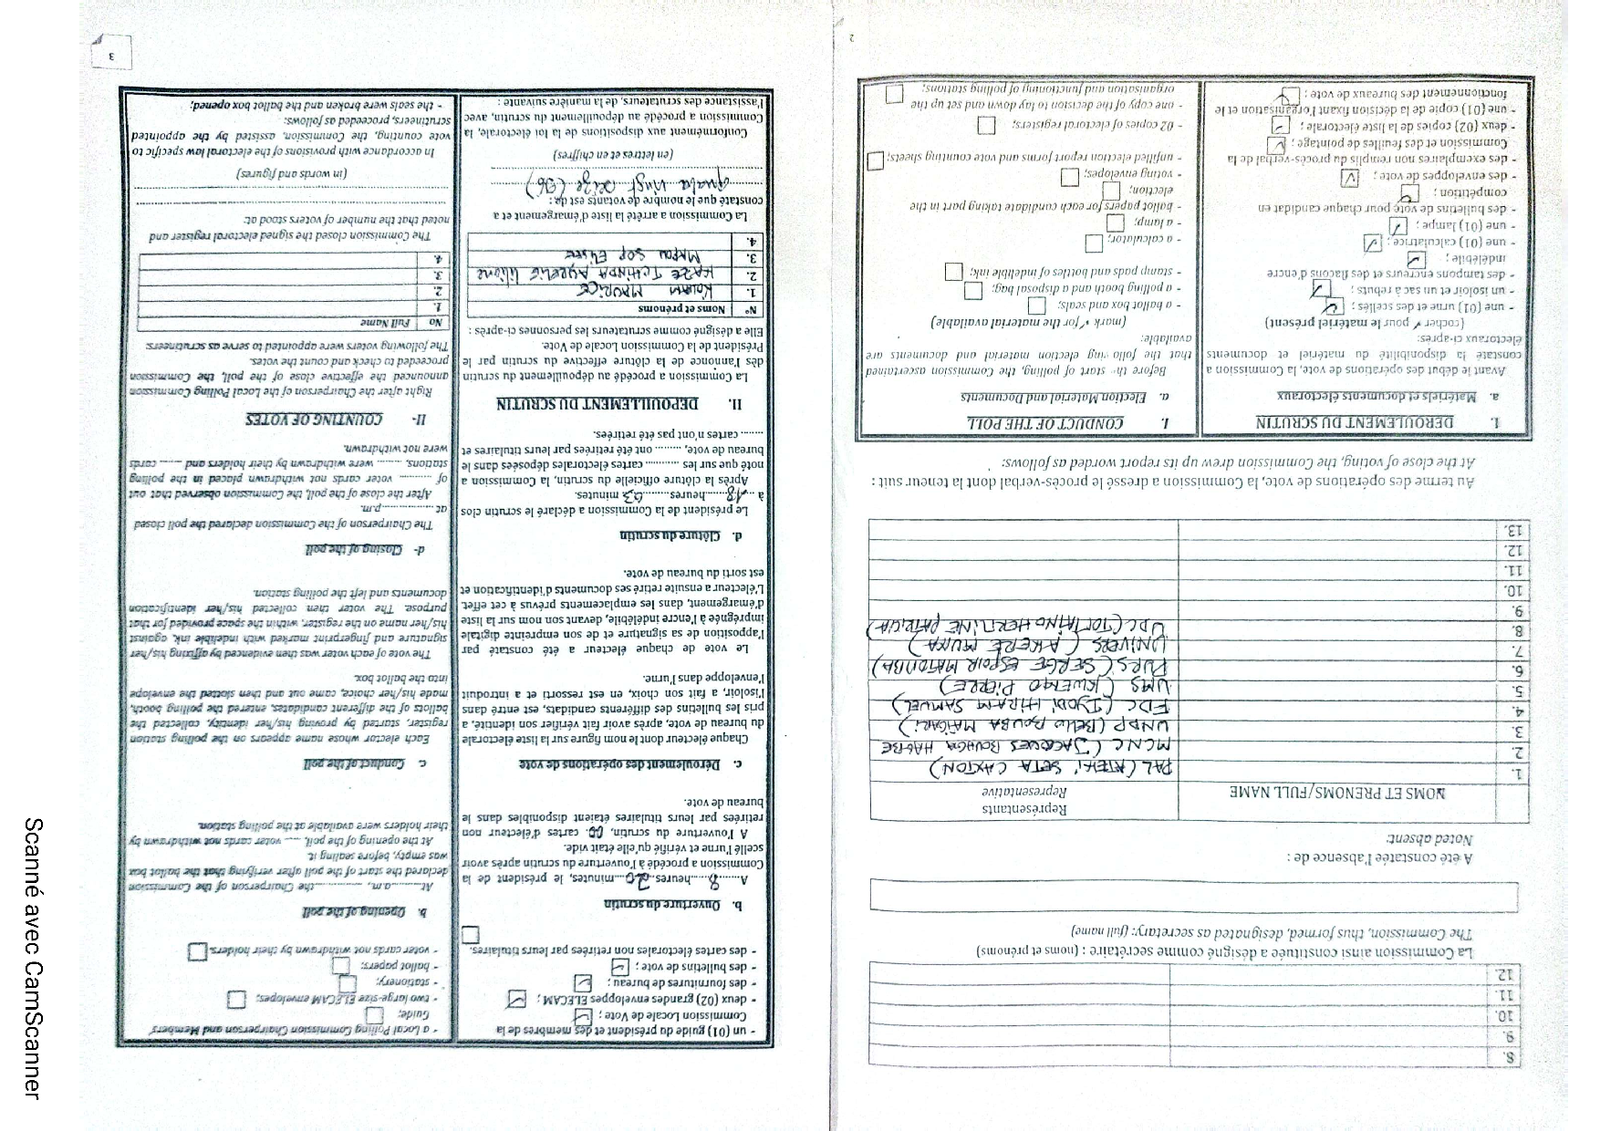 8.
9.
10.
11.
12.
La Commission ainsi constituée a désigné comme secrétaire : (noms et prénoms)
The Commission, thus formed, designated as secretary: (full name)
A été constatée l'absence de :
Noted absent:
NOMS ET PRENOMS/FULL NAME
Représentants
Representative
1. PAL (ATEKI SETA CAXTON)
2. MCNC (JACQUES BOUHGA HAGBE
3. UNDP (BELLO BOUBA MAÏGARI)
4. FDC (IYODI HIRAM SAMUEL)
5. UMS (KWEMO PIERRE)
6. PURS (SERGE ESPOIR MATOMBA)
7. UNIVERS (AKERE MUNA)
8. UDC (TOMAINO HERMINE PATRICIA)
9.
10.
11.
12.
13.
Au terme des opérations de vote, la Commission a dressé le procès-verbal dont la teneur suit :
At the close of voting, the Commission drew up its report worded as follows:
I. DEROULEMENT DU SCRUTIN
a. Matériels et documents électoraux
Avant le début des opérations de vote, la Commission a
constaté la disponibilité du matériel et documents
électoraux ci-après:
(cocher ✓ pour le matériel présent)
- une (01) urne et des scellés ;
- un isoloir et un sac à rebuts ;
- des tampons encreurs et des flacons d'encre
indélébile ;
- une (01) calculatrice ;
- une (01) lampe ;
- des bulletins de vote pour chaque candidat en
compétition ;
- des enveloppes de vote ;
- des exemplaires non remplis du procès-verbal de la
Commission et des feuilles de pointage ;
- deux (02) copies de la liste électorale ;
- une (01) copie de la décision fixant l'organisation et le
fonctionnement des bureaux de vote ;
I. CONDUCT OF THE POLL
a. Election Material and Documents
Before the start of polling, the Commission ascertained
that the following election material and documents are
available:
(mark ✓ for the material available)
- a ballot box and seals;
- a polling booth and a disposal bag;
- stamp pads and bottles of indelible ink;
- a calculator;
- a lamp;
- ballot papers for each candidate taking part in the
election;
- voting envelopes;
- unfilled election report forms and vote counting sheets;
- 02 copies of electoral registers;
- one copy of the decision to lay down and set up the
organisation and functioning of polling stations;
2
- un (01) guide du président et des membres de la
Commission Locale de Vote ;
- deux (02) grandes enveloppes ELECAM ;
- des fournitures de bureau ;
- des bulletins de vote ;
- des cartes électorales non retirées par leurs titulaires.
b. Ouverture du scrutin
A ....8....heures....20....minutes, le président de la
Commission a procédé à l'ouverture du scrutin après avoir
scellé l'urne et vérifié qu'elle était vide.
A l'ouverture du scrutin, 00. cartes d'électeur non
retirées par leurs titulaires étaient disponibles dans le
bureau de vote.
c. Déroulement des opérations de vote
Chaque électeur dont le nom figure sur la liste électorale
du bureau de vote, après avoir fait vérifier son identité, a
pris les bulletins des différents candidats, est entré dans
l'isoloir, a fait son choix, en est ressorti et a introduit
l'enveloppe dans l'urne.
Le vote de chaque électeur a été constaté par
l'apposition de sa signature et de son empreinte digitale
imprégnée à l'encre indélébile, devant son nom sur la liste
d'émargement, dans les emplacements prévus à cet effet.
L'électeur a ensuite retiré ses documents d'identification et
est sorti du bureau de vote.
d. Clôture du scrutin
Le président de la Commission a déclaré le scrutin clos
à ...18....heures......03.... minutes.
Après la clôture officielle du scrutin, la Commission a
noté que sur les ......... cartes électorales déposées dans le
bureau de vote, ....... ont été retirées par leurs titulaires et
...... cartes n'ont pas été retirées.
II. DEPOUILLEMENT DU SCRUTIN
La Commission a procédé au dépouillement du scrutin
dès l'annonce de la clôture effective du scrutin par le
Président de la Commission Locale de Vote.
Elle a désigné comme scrutateurs les personnes ci-après :
N° Noms et prénoms
1. KOUAM MAURICE
2. KAZE TCHINDA AURELIE liliane
3. MAPOU SOP Elisee
4.
La Commission a arrêté la liste d'émargement et a
constaté que le nombre de votants est de :
quatre vingt seize (96)
(en lettres et en chiffres)
Conformément aux dispositions de la loi électorale, la
Commission a procédé au dépouillement du scrutin, avec
l'assistance des scrutateurs, de la manière suivante :
- a Local Polling Commission Chairperson and Members'
Guide;
- two large-size ELECAM envelopes;
- stationery;
- ballot papers;
- voter cards not withdrawn by their holders.
b. Opening of the poll
At..........a.m, ..............the Chairperson of the Commission
declared the start of the poll after verifying that the ballot box
was empty, before sealing it.
At the opening of the poll, .... voter cards not withdrawn by
their holders were available at the polling station.
c. Conduct of the poll
Each elector whose name appears on the polling station
register, started by proving his/her identity, collected the
ballots of the different candidates, entered the polling booth,
made his/her choice, came out and then slotted the envelope
into the ballot box.
The vote of each voter was then evidenced by affixing his/her
signature and fingerprint marked with indelible ink, against
his/her name on the register, within the space provided for that
purpose. The voter then collected his/her identification
documents and left the polling station.
d- Closing of the poll
The Chairperson of the Commission declared the poll closed
at ..................p.m.
After the close of the poll, the Commission observed that out
of ......... voter cards not withdrawn placed in the polling
stations, ...... were withdrawn by their holders and ...... cards
were not withdrawn.
II- COUNTING OF VOTES
Right after the Chairperson of the Local Polling Commission
announced the effective close of the poll, the Commission
proceeded to check and count the votes.
The following voters were appointed to serve as scrutineers:
No Full Name
1.
2.
3.
4.
The Commission closed the signed electoral register and
noted that the number of voters stood at:
(in words and figures)
In accordance with provisions of the electoral law specific to
vote counting, the Commission, assisted by the appointed
scrutineers, proceeded as follows:
- the seals were broken and the ballot box opened;
3
Scanné avec CamScanner